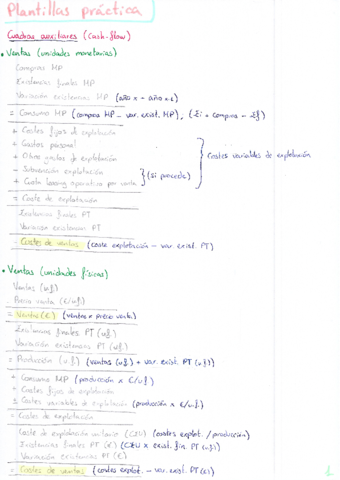 Plantillas práctica
Cuadros auxiliares (Cash-flow)
• Ventas (unidades monetarias)
Compras MP
Existencias finales MP
Variación existencias MP (año x - año x-1)
= Consumo MP (compras MP - var. exist. MP), (Ei + compras - Ef)
+ Costes fijos d explotación
+ Gastos personal
+ Otros gastos d explotación
+ Subvención explotación
+ Cuota leasing operativo por venta
} (si procede)
} Costes variables de explotación
= Coste de explotación
Existencias finales PT
Variación existencias PT
= Costes de ventas (coste explotación - var. exist. PT)
• Ventas (unidades físicas)
Ventas (u.f.)
Precio venta (€/u.f.)
= Ventas (€) (ventas x precio venta)
Existencias finales PT (u.f.)
Variación existencias PT (u.f.)
= Producción (u.f.) (ventas (u.f.) + var. exist. PT (u.f.))
+ Consumo MP (producción x €/u.f.)
+ Costes fijos de explotación
+ Costes variables de explotación (producción x €/u.f.)
= Costes de explotación
Coste de explotación unitario (CEU) (costes explot. / producción)
Existencias finales PT (€) (CEU x exist. fin. PT (u.f.))
Variación existencias PT (€)
= Costes de ventas (costes explot. - var. exist. PT (€))
1